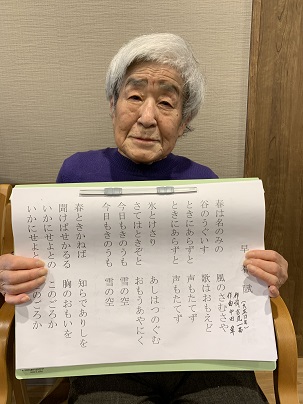 早春賦
作曲 中田 章
春は名のみの 風のさむさや
谷のうぐいす 歌はおもえど
ときにあらずと 声もたてず
ときにあらずと 声もたてず
氷とけさり あしはつのぐむ
さてはときぞと おもうあやにく
今日もきのうも 雪の空
今日もきのうも 雪の空
春ときかねば 知らでありしを
聞けばせかるる 胸のおもいを
いかにせよとの このごろか
いかにせよとの このごろか